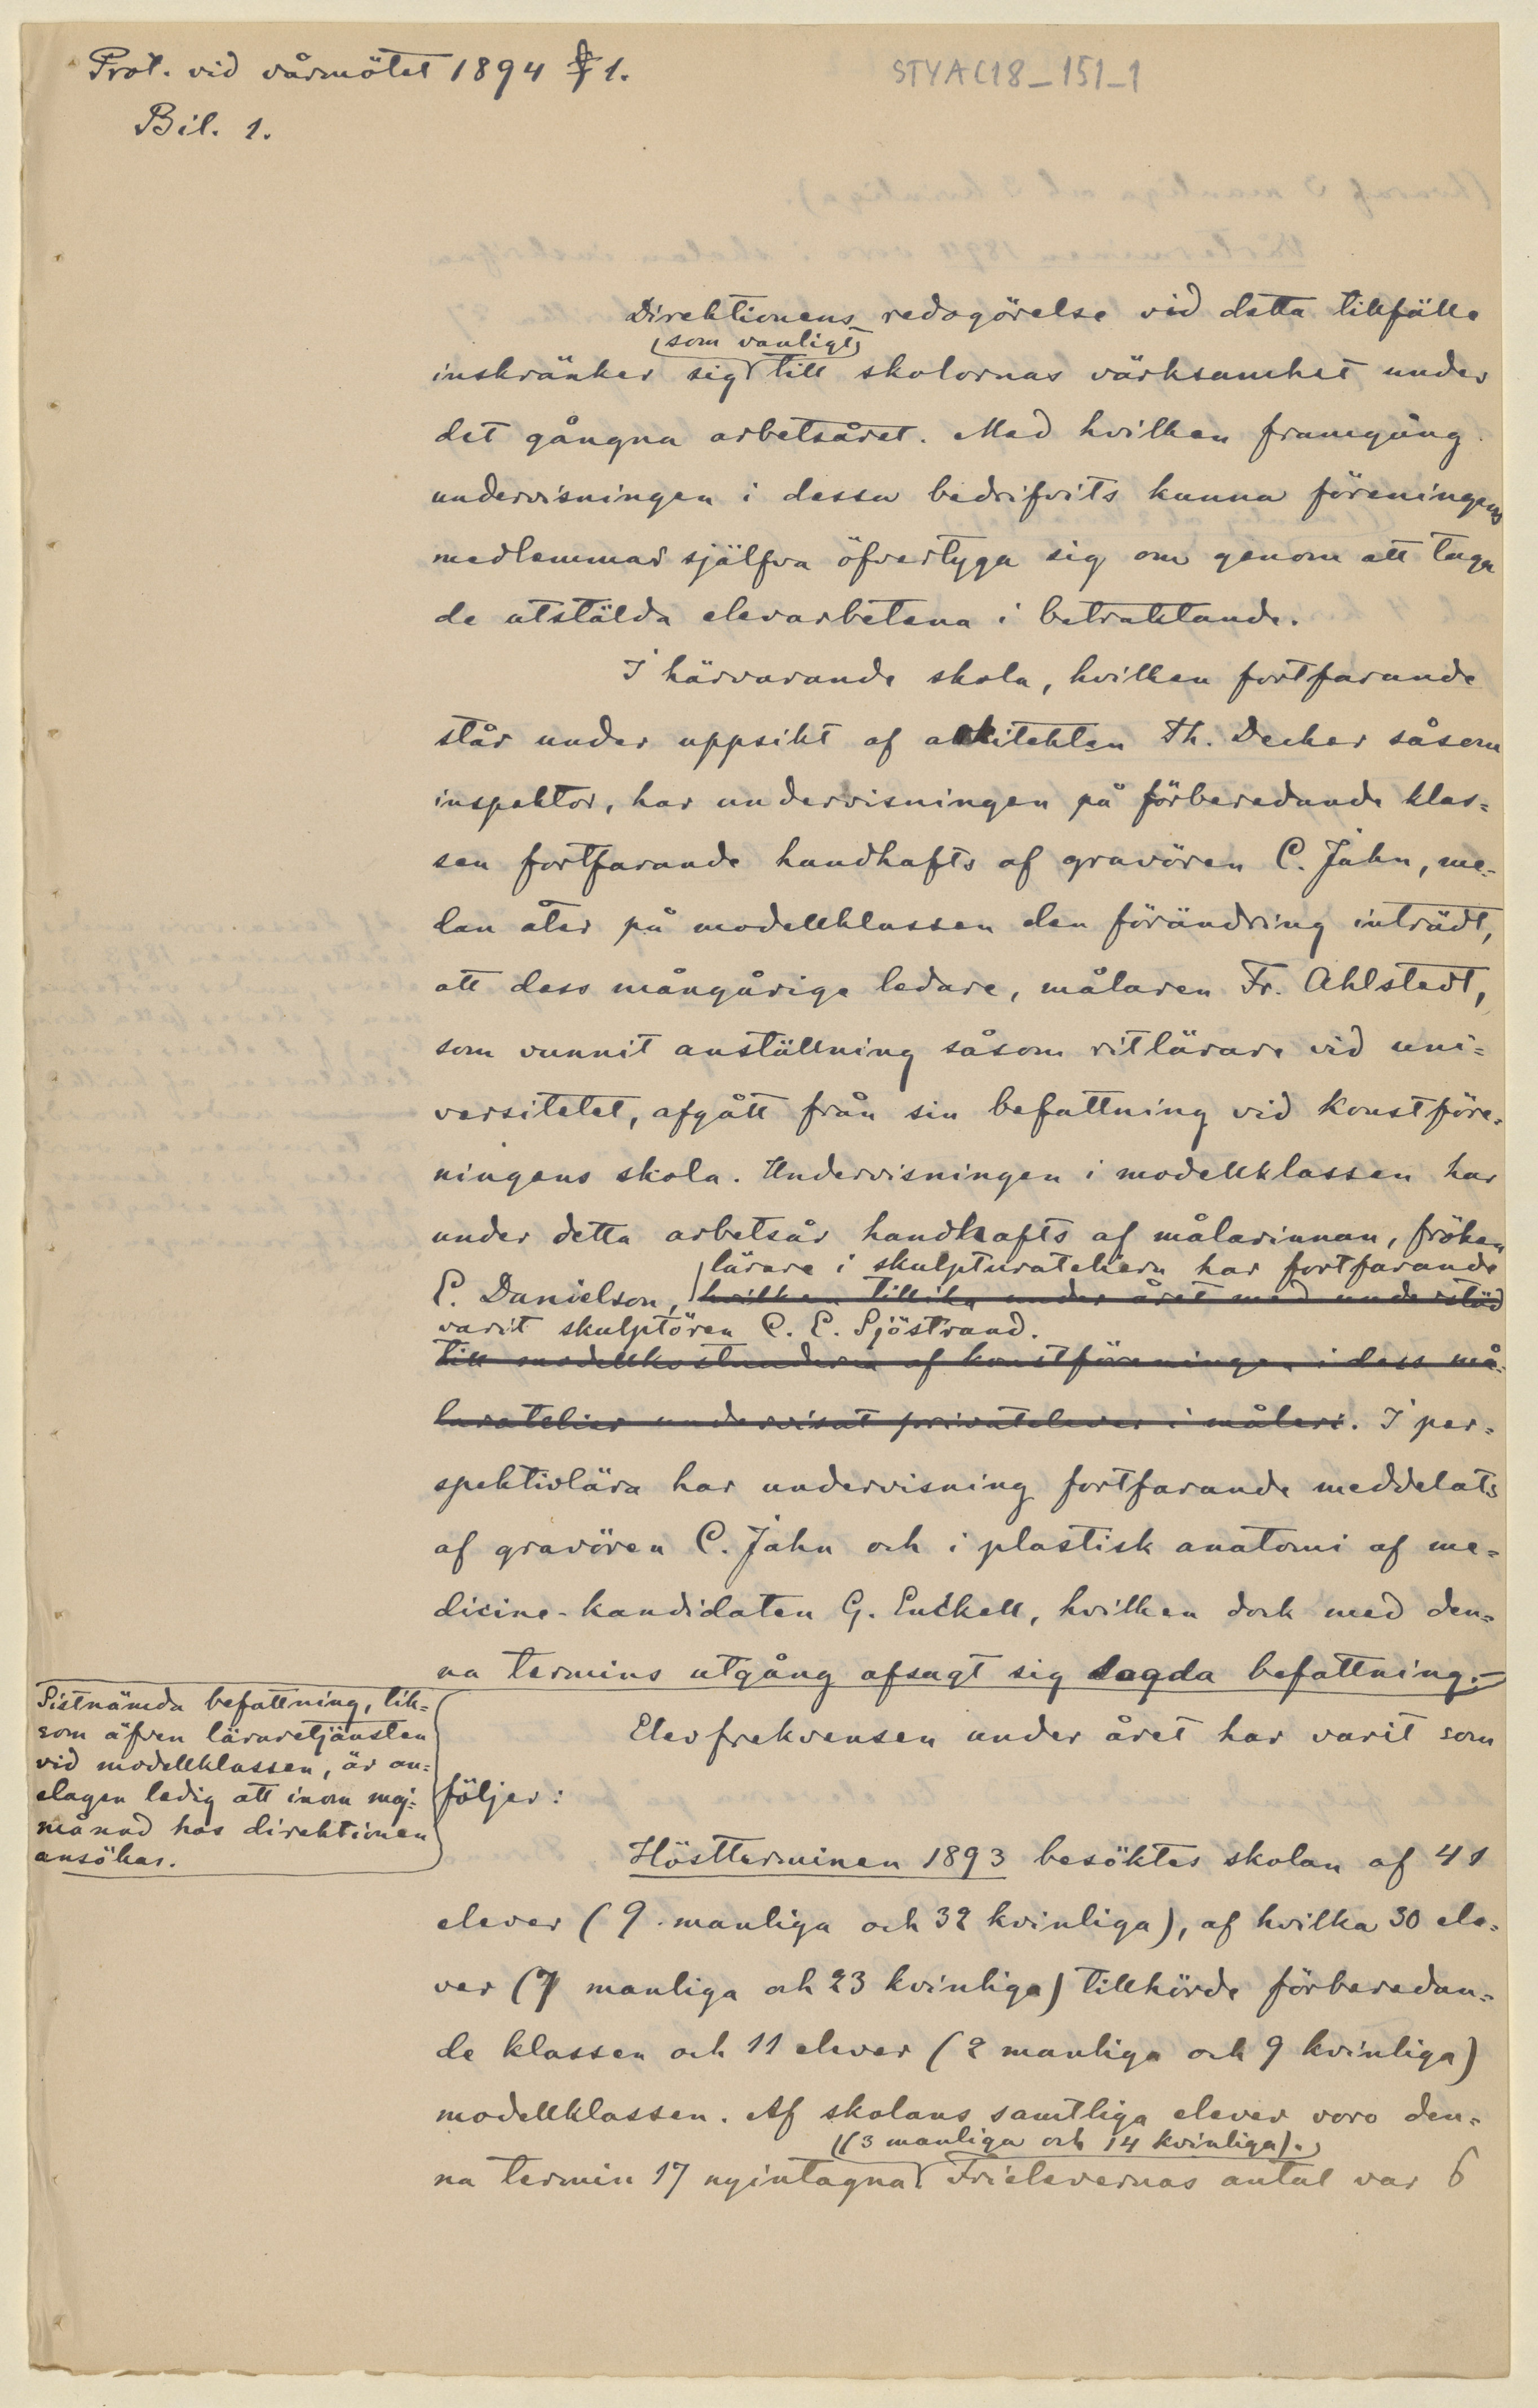 Prot. vid vårmötet 1894 § 1.
STYAC18_151_1
Bil. 1.
Direktionens redogörelse vid detta tillfälle
som vanligt
inskränker sig till skolornas värksamhet under
det gångna arbetsåret. Med hvilken framgång
undervisningen i dessa bedrifvits kunna föreningens
medlemmar själfva öfvertyga sig om genom att taga
de utstälda elevarbetena i betraktande.
I härvarande skola, hvilken fortfarande
står under uppsikt af arkitekten Th. Decker såsom
inspektor, har undervisningen på förberedande klas=
sen fortfarande handhafts af gravören C. Jahn, me-
lan åter på modellklassen den förändring inträdt,
att dess mångårige ledare, målaren Fr. Ahlstedt,
som vunnit anställning såsom ritlärare vid uni=
versitetet, afgått från sin befattning vid konstföre=
ningens skola. Undervisningen i modellklassen har
under detta arbetsår handhafts af målarinnan, fröken
lärare i skulpturateliern har fortfarande
E. Danielson, hvilken tillika under året med understöd
varit skulptören C. E. Sjöstrand.
till modellkostnaderna af konstföreningen i dess må-
laratelier undervisat privatelever i måleri. I per=
spektivlära har undervisning fortfarande meddelats
af gravören C. Jahn och i plastisk anatomi af me=
dicine-kandidaten G. Enckell, hvilken dock med den=
na termins utgång afsagt sig sagda befattning.-
Sistnämda befattning, lik=
som äfven läraretjänsten
vid modellklassen, är an=
slagen ledig att inom maj=
månad hos direktionen
ansökas.
Elevfrekvensen under året har varit som
följer:
Höstterminen 1893 besöktes skolan af 41
elever (9 manliga och 32 kvinliga), af hvilka 30 ele=
ver (7 manliga och 23 kvinliga) tillhörde förberedan=
de klassen och 11 elever (2 manliga och 9 kvinliga)
modellklassen. Af skolans samtliga elever voro den=
(3 manliga och 14 kvinliga).
na termin 17 nyintagna Frielevernas antal var 6